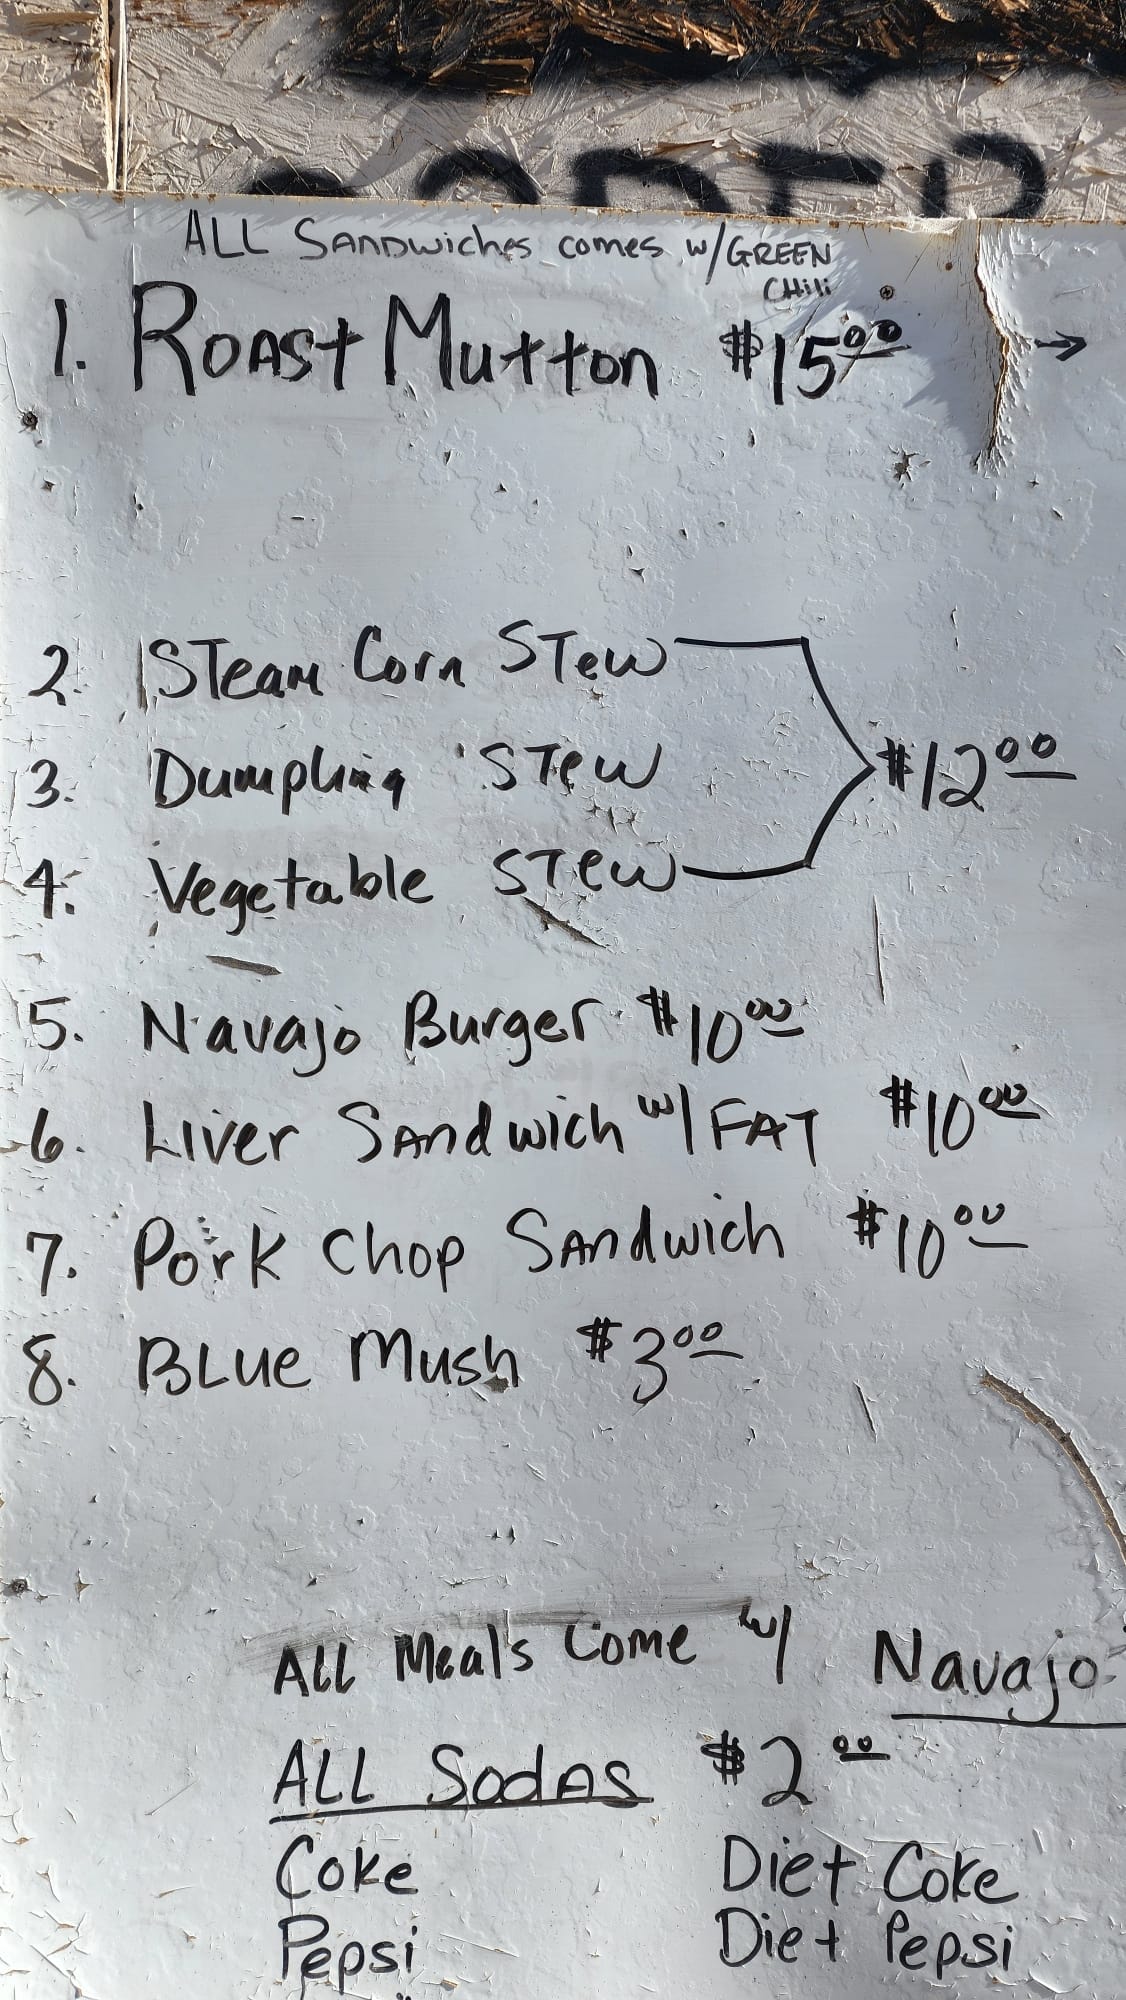 ORDER
ALL SANDwiches comes w/GREEN
CHili
1. ROASt Mutton $15⁰⁰ →
2. STeam Corn STew
3. Dumpling STew $12⁰⁰
4. Vegetable STew
5. Navajo Burger $10⁰⁰
6. Liver SANdwich w/ FAT $10⁰⁰
7. Pork Chop SANdwich $10⁰⁰
8. BLUe Mush $3⁰⁰
ALL Meals Come w/ Navajo
ALL SodAS $2⁰⁰
Coke Diet Coke
Pepsi Diet Pepsi